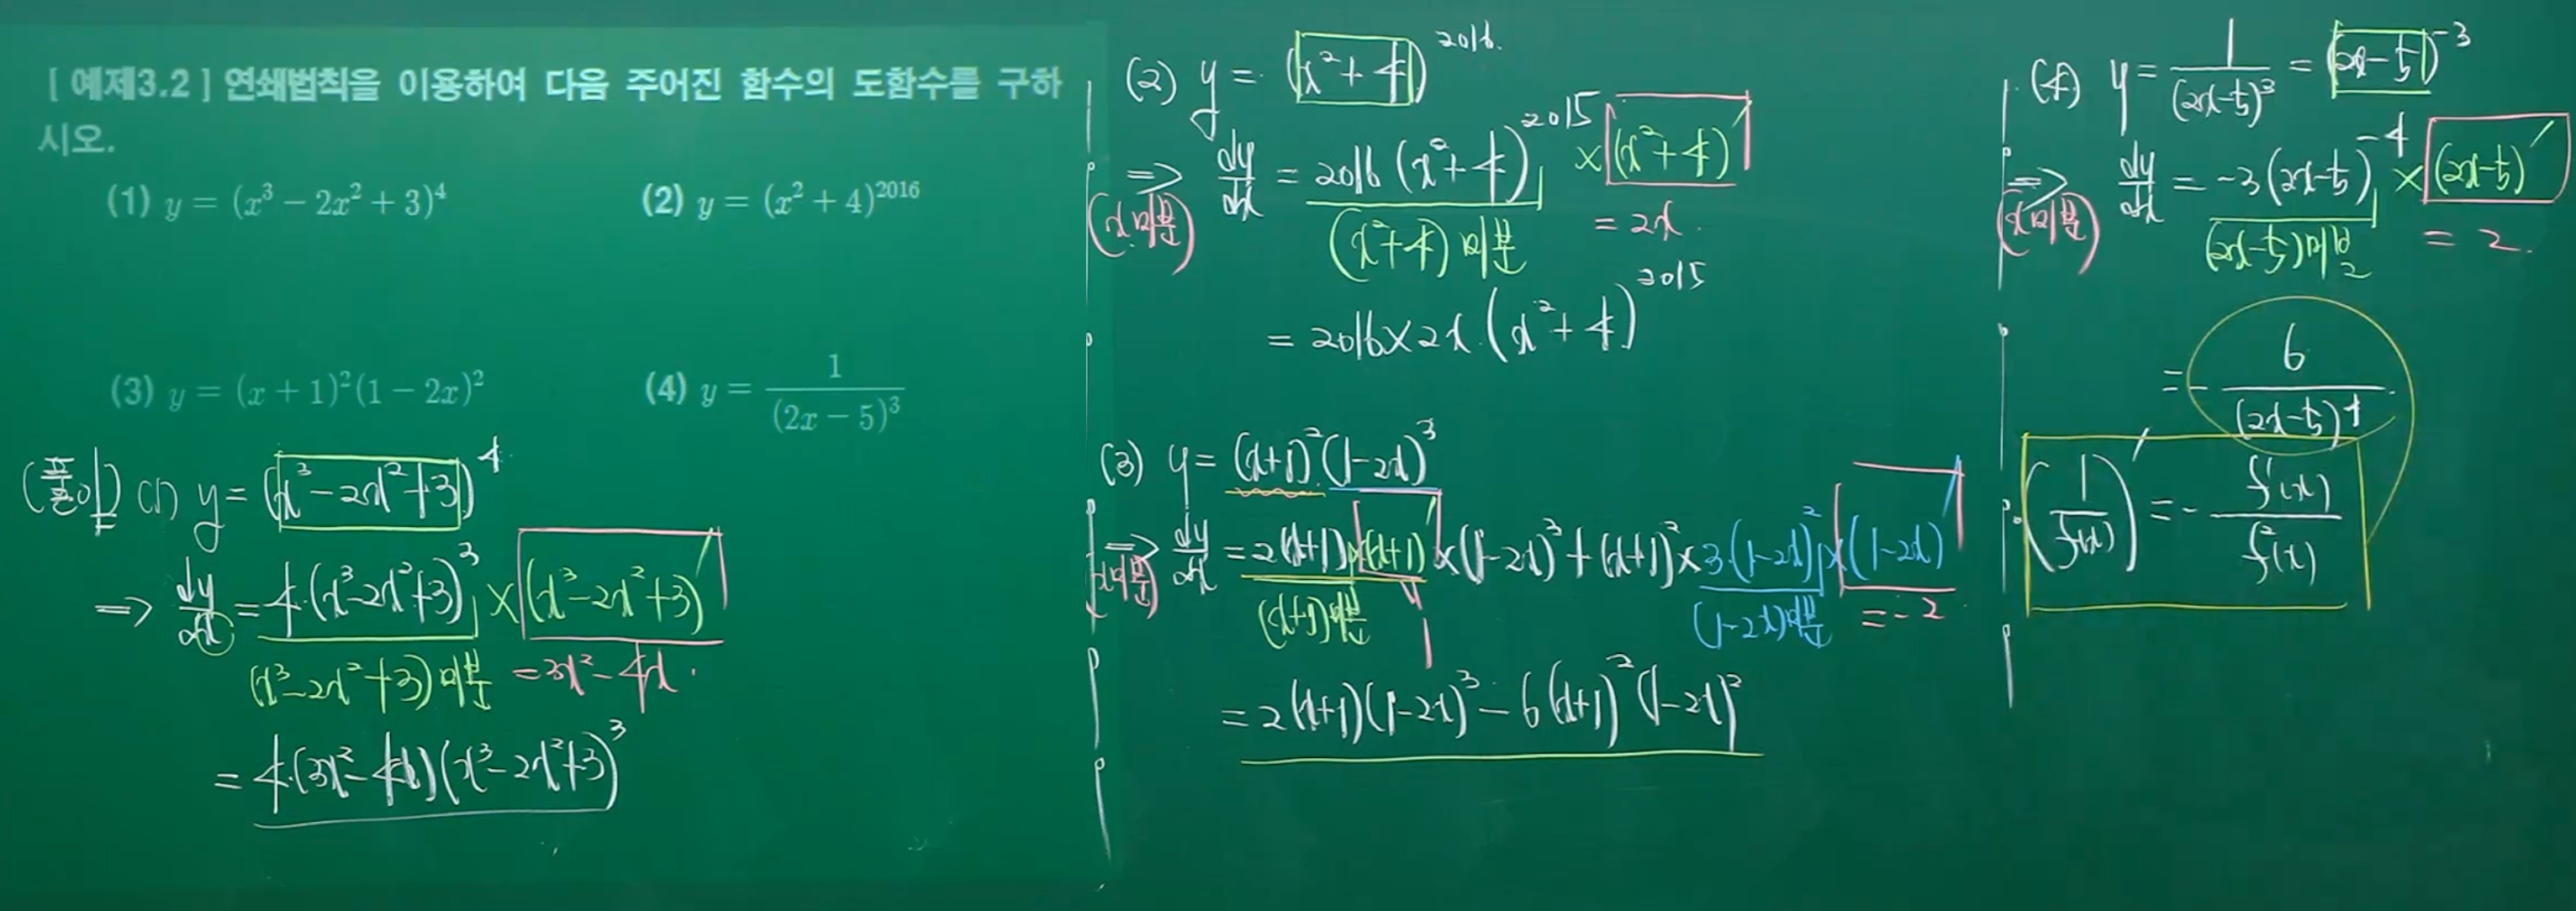 [ 예제3.2 ] 연쇄법칙을 이용하여 다음 주어진 함수의 도함수를 구하
시오.
(1) y = (x³ − 2x² + 3)⁴ (2) y = (x² + 4)²⁰¹⁶
(3) y = (x + 1)²(1 − 2x)² (4) y = 1/(2x − 5)³
(풀이) (1) y = (x³−2x²+3)⁴
⇒ dy/dx = 4·(x³−2x²+3)³ × (x³−2x²+3)′
(x³−2x²+3)미분 = 3x²−4x.
= 4·(3x²−4x)(x³−2x²+3)³
(2) y = (x²+4)²⁰¹⁶.
⇒ dy/dx = 2016(x²+4)²⁰¹⁵ × (x²+4)′
(x미분) (x²+4)미분 = 2x.
= 2016×2x·(x²+4)²⁰¹⁵
(3) y = (x+1)²(1−2x)³
⇒ dy/dx = 2(x+1)×(x+1)′×(1−2x)³ + (x+1)²×3·(1−2x)²×(1−2x)′
(x미분) (x+1)미분 1 (1−2x)미분 = −2
= 2(x+1)(1−2x)³ − 6(x+1)²(1−2x)²
(4) y = 1/(2x−5)³ = (2x−5)⁻³
⇒ dy/dx = −3(2x−5)⁻⁴ × (2x−5)′
(x미분) (2x−5)미분 = 2.
= − 6/(2x−5)⁴
(1/f(x))′ = − f′(x)/f²(x)